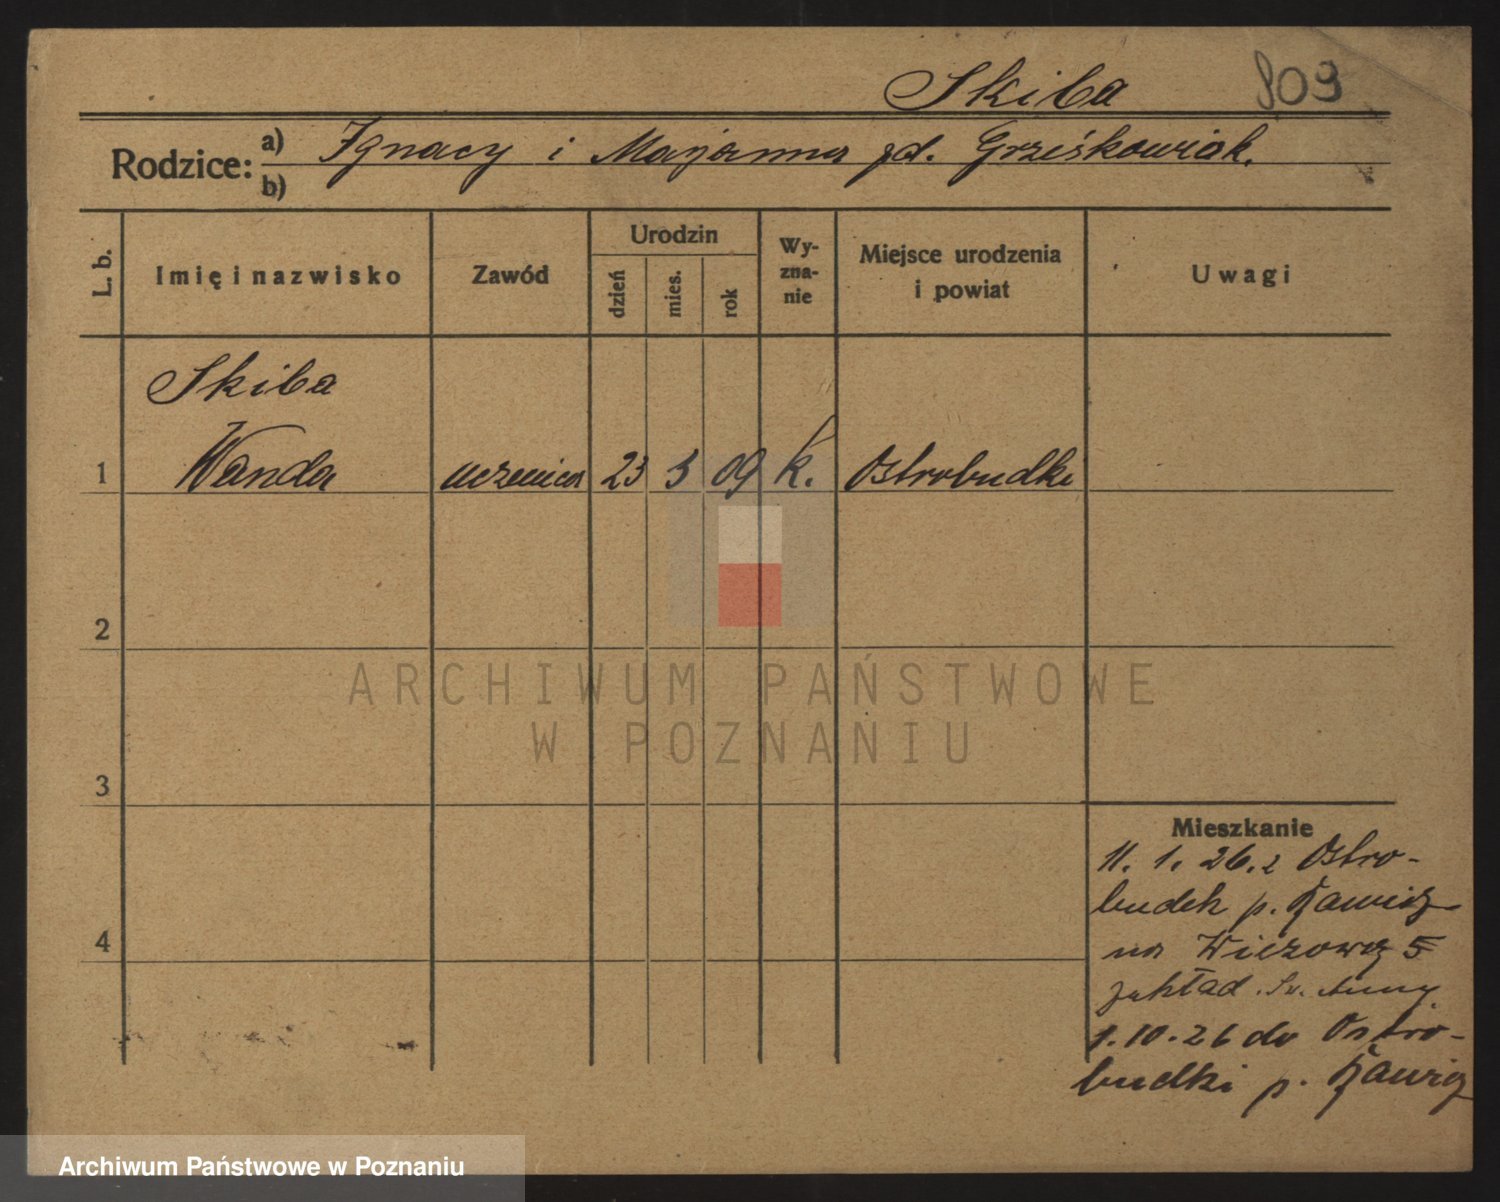 Skiba 809
Rodzice: a) Ignacy i Marjanna zd. Grześkowiak.
b)
L. b. Imię i nazwisko Zawód Urodzin dzień mies. rok Wy-zna-nie Miejsce urodzenia i powiat Uwagi
Skiba
1 Wanda uczenica 23 3 09 k. Ostrobudki
2
3
4
Mieszkanie
11. 1. 26. z Ostro-
budek p. Rawicz
na Wieżową 5
zakład św. Anny
1.10.26 do Ostro-
budki p. Rawicz
ARCHIWUM PAŃSTWOWE
W POZNANIU
Archiwum Państwowe w Poznaniu